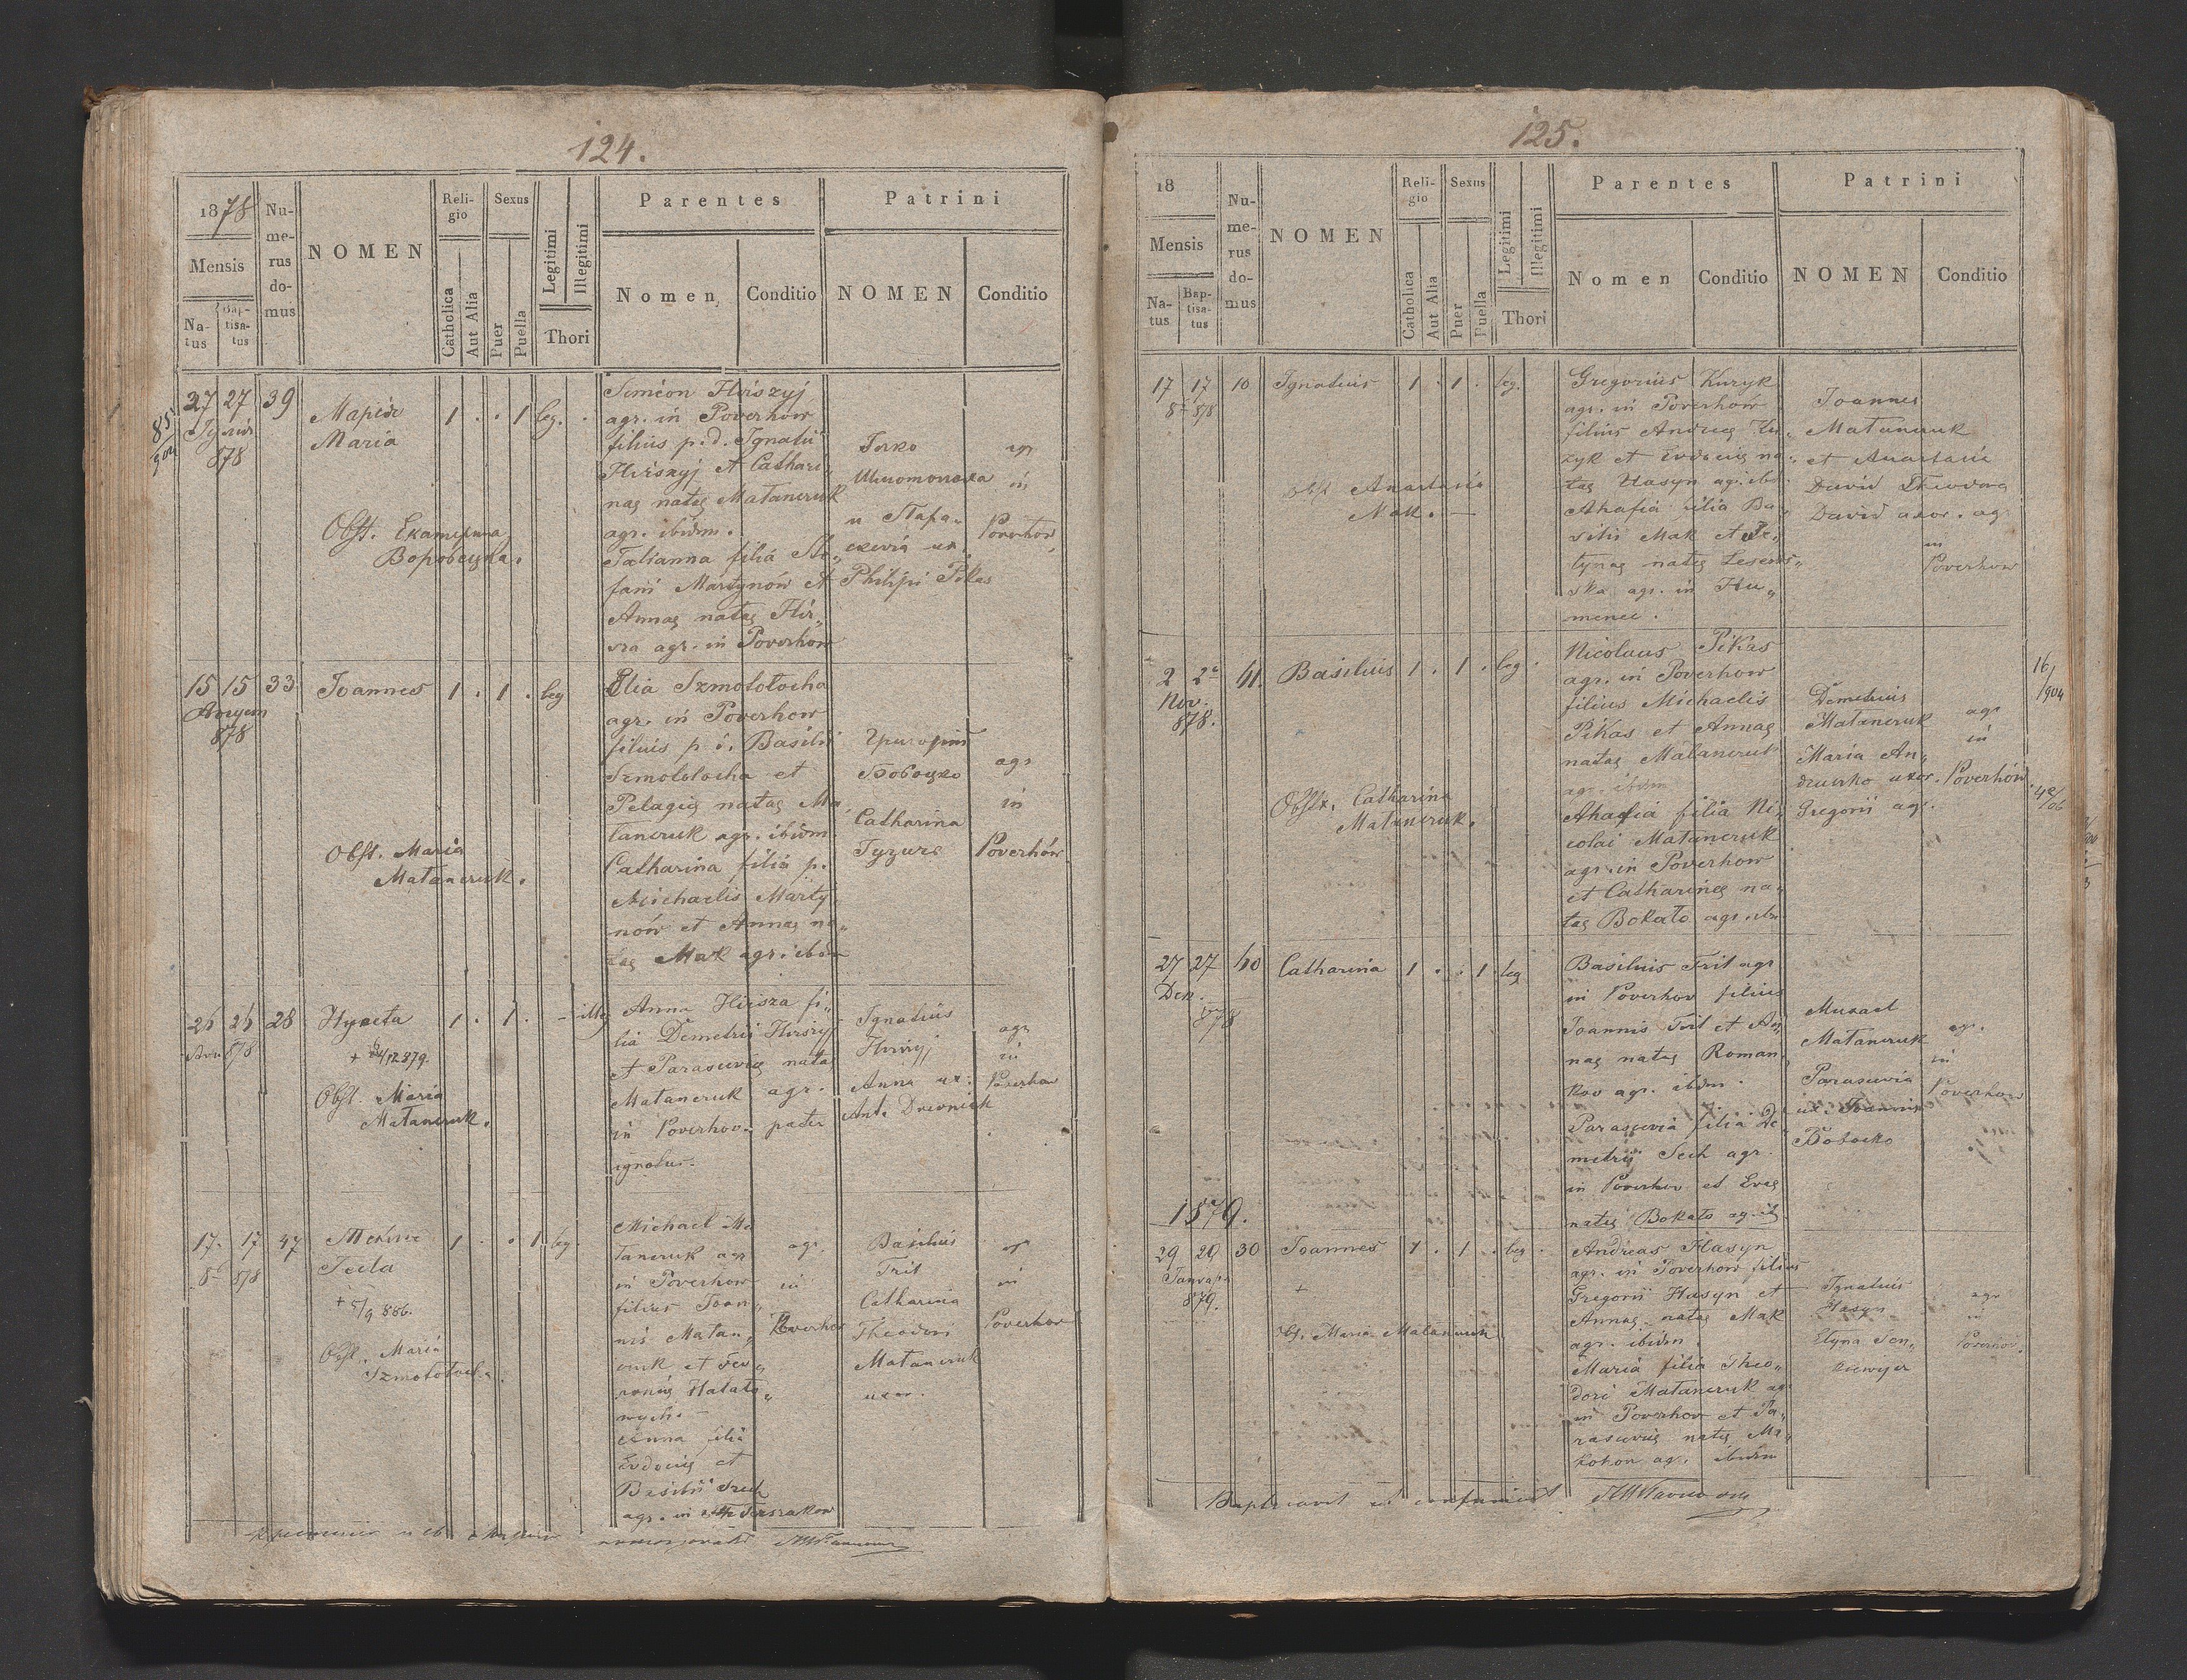 124.
1878
Mensis
Na-
tus
Bap-
tisa-
tus
Nu-
me-
rus
do-
mus
NOMEN
Reli-
gio
Catholica
Aut Alia
Sexus
Puer
Puella
Legitimi
Illegitimi
Thori
Parentes
Nomen
Conditio
Patrini
NOMEN
Conditio
27 27 39
878
Марія
Maria
1 . . 1 leg. .
Obst. Екатерина
Воробецка.
Simeon Hirszyj
agr. in Poverhow
filius p. d. Ignatii
Hirszyj et Cathari„
nae natae Matancruk
agr. ibidm.
Tatianna filia Ste„
fani Martynów et
Annae natae Hir„
agr. in Poverhow
и Пара„
Philipi Pikas
agr
in
Poverhow
15 15 33
878
Joannes
1 . 1 . leg
Obst. Maria
Matancruk.
Elia Szmolotocha
agr. in Poverhow
filius p. d. Basilii
Szmolotocha et
Pelagie natae Ma„
tancruk agr. ibidm.
Catharina filia p.
Michaelis Marty„
nów et Annae na„
tae Mak agr. ibidm
Григорій
Бобецко
Catharina
agr
in
Poverhów
26 26 28
878
1 . 1 . - illeg
+ 24/12 879.
Obst. Maria
Matancruk.
Anna Hirsza fi„
lia Demetrii Hirszyj
et Parascevie natae
Matancruk agr.
in Poverhov. pater
ignotus.
Ignatius
Anna ux.
Ant. Drevniak
agr
in
Poverhow
17. 17 47
8 878
Tecla
1 . . 1 leg.
+ 5/9 886.
Obst. Maria
Szmolotocha.
Michael Ma
tancruk agr
in Poverhow
filius Joan„
nis Matan„
cruk et Fev„
roniae
Anna filia
Evdociae et
Basilii Sech
agr. in
agr.
in
Poverhov
Basilius
Trit
Catharina
Theodori
Matancruk
uxor.
agr
in
Poverhov
125.
18
Mensis
Na-
tus
Bap-
tisa-
tus
Nu-
me-
rus
do-
mus
NOMEN
Reli-
gio
Catholica
Aut Alia
Sexus
Puer
Puella
Legitimi
Illegitimi
Thori
Parentes
Nomen
Conditio
Patrini
NOMEN
Conditio
17 17 10
8 878
Ignatius
1 . 1 . leg.
Obst Anastasia
Mak. —
Gregorius Kuzyk
agr. in Poverhow
filius Andreae Ku„
zyk et Evdociae na„
tae Hasyn agr. ibi
Ahafia filia Ba„
silii Mak et
tynae natae
ska agr. in Hu„
menec.
Joannes
Matancruk
et Anastasia
David Theodora
David uxor. ag
in
Poverhow
2 2 41.
Nov.
878.
Basilius
1 . 1 . leg
Obstx. Catharina
Matancruk.
Nicolaus Pikas
agr. in Poverhow
filius Michaelis
Pikas et Annae
natae Matancruk
agr. ibidm
Ahafia filia Ni„
colai Matancruk
agr. in Poverhow
et Catharinae na„
tae Bokalo agr. ibi
Demetrius
Matancruk
Maria An„
druszko uxor.
Gregorii agr.
agr
in
Poverhów.
16/904
27 27 40
Dec.
878
Catharina
1 . . 1 leg
Basilius Trit agr
in Poverhov filius
Joannis Trit et An
nae natae Roman„
kov agr. ibidm.
Parascevia filia De„
metrii Sech agr.
in Poverhov et Evae
natae Bokalo agr. ib
Matancruk
Parascevia
ux. Joannis
Bobecko
agr.
in
Poverhow
1879.
29 29 30
879.
Joannes
1 . 1 . leg .
+
Obs. Maria Matancruk
Andreas Hasyn
agr. in Poverhow filius
Gregorii Hasyn et
Annae natae Mak
agr. ibidm.
Maria filia Theo„
dori Matancruk agr
in Poverhov et Pa„
rasceviae natae Ma„
agr. ibidm
Ignatius
Hasyn
agr
in
Poverhov.
Baptisavit et confirmavit